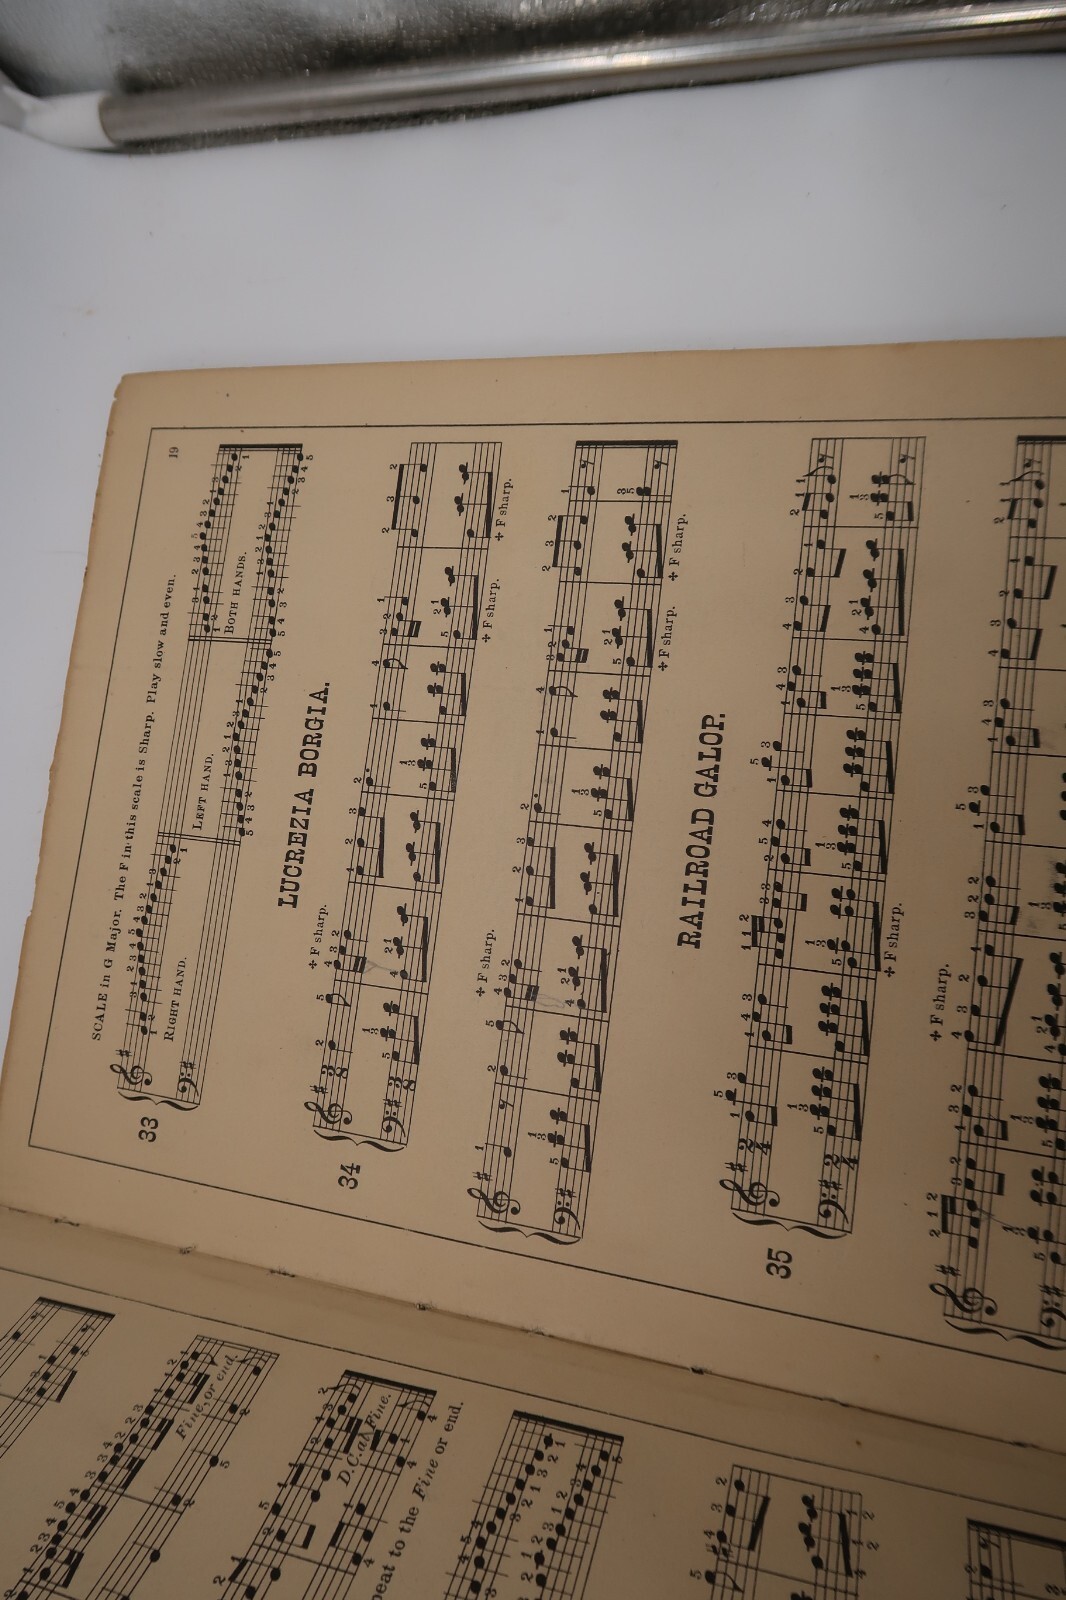 19
SCALE in G Major. The F in this scale is Sharp. Play slow and even.
33
RIGHT HAND.
LEFT HAND.
BOTH HANDS.
LUCREZIA BORGIA.
34
+ F sharp.
+ F sharp.
+ F sharp.
+ F sharp.
+ F sharp.
+ F sharp.
RAILROAD GALOP.
35
+ F sharp.
+ F sharp.
Fine, or end.
D.C. al Fine.
peat to the Fine or end.